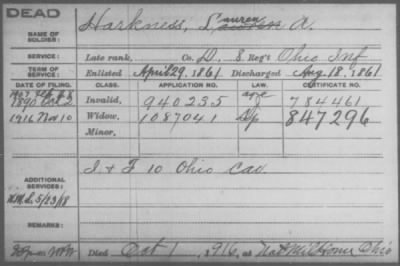 DEAD
NAME OF SOLDIER:
Harkness, Lauren A.
SERVICE:
Late rank, Co. D, 8 Reg't Ohio Inf
TERM OF SERVICE:
Enlisted April 29, 1861 Discharged Aug. 18, 1861
DATE OF FILING. CLASS. APPLICATION NO. LAW. CERTIFICATE NO.
1890 Oct 2 Invalid, 940235 784461
1916 Nov 10 Widow, 1087041 847296
Minor,
ADDITIONAL SERVICES:
I & F 10 Ohio Cav
5/23/18
REMARKS:
Died Oct 1, 1916, at Nat Mil Home Ohio